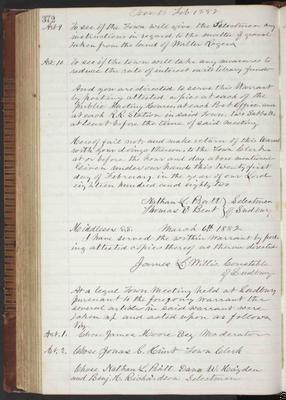 372
Art. 9. To see if the Town will give the Selectmen any
instructions in regard to the matter of gravel
taken from the land of Walter Rogers
Art. 10. To see if the town will take any measures to
reduce the rate of interest on its library fund
And you are directed to serve this Warrant
by posting attested copies at each of the
Public Meeting houses, at each Post Office, and
at each R.R. Station in said Town, two Sabbaths
at least before the time of said meeting
Hereof fail not and make return of this Warrant
with your doings thereon to the Town Clerk
at or before the hour and day above mentioned
Given under our hands this twenty first
day of February, in the year of our Lord
eighteen hundred and eighty two
Nathan L. Pratt } Selectmen
Thomas P. Bent } of Sudbury
Middlesex SS. March 6th 1882
I have served the within warrant by post
ing attested copies thereof as therein directed
James L. Willis Constable
of Sudbury
At a legal Town Meeting held at Sudbury
pursuant to the foregoing warrant the
several articles in said warrant were
taken up and acted upon as follows
viz
Art. 1. Chose James Moore Esq Moderator
Art. 2. Chose Jonas S. Hunt Town Clerk
Chose Nathan L. Pratt, Dana W. Hayden
and Benj. H. Richardson Selectmen